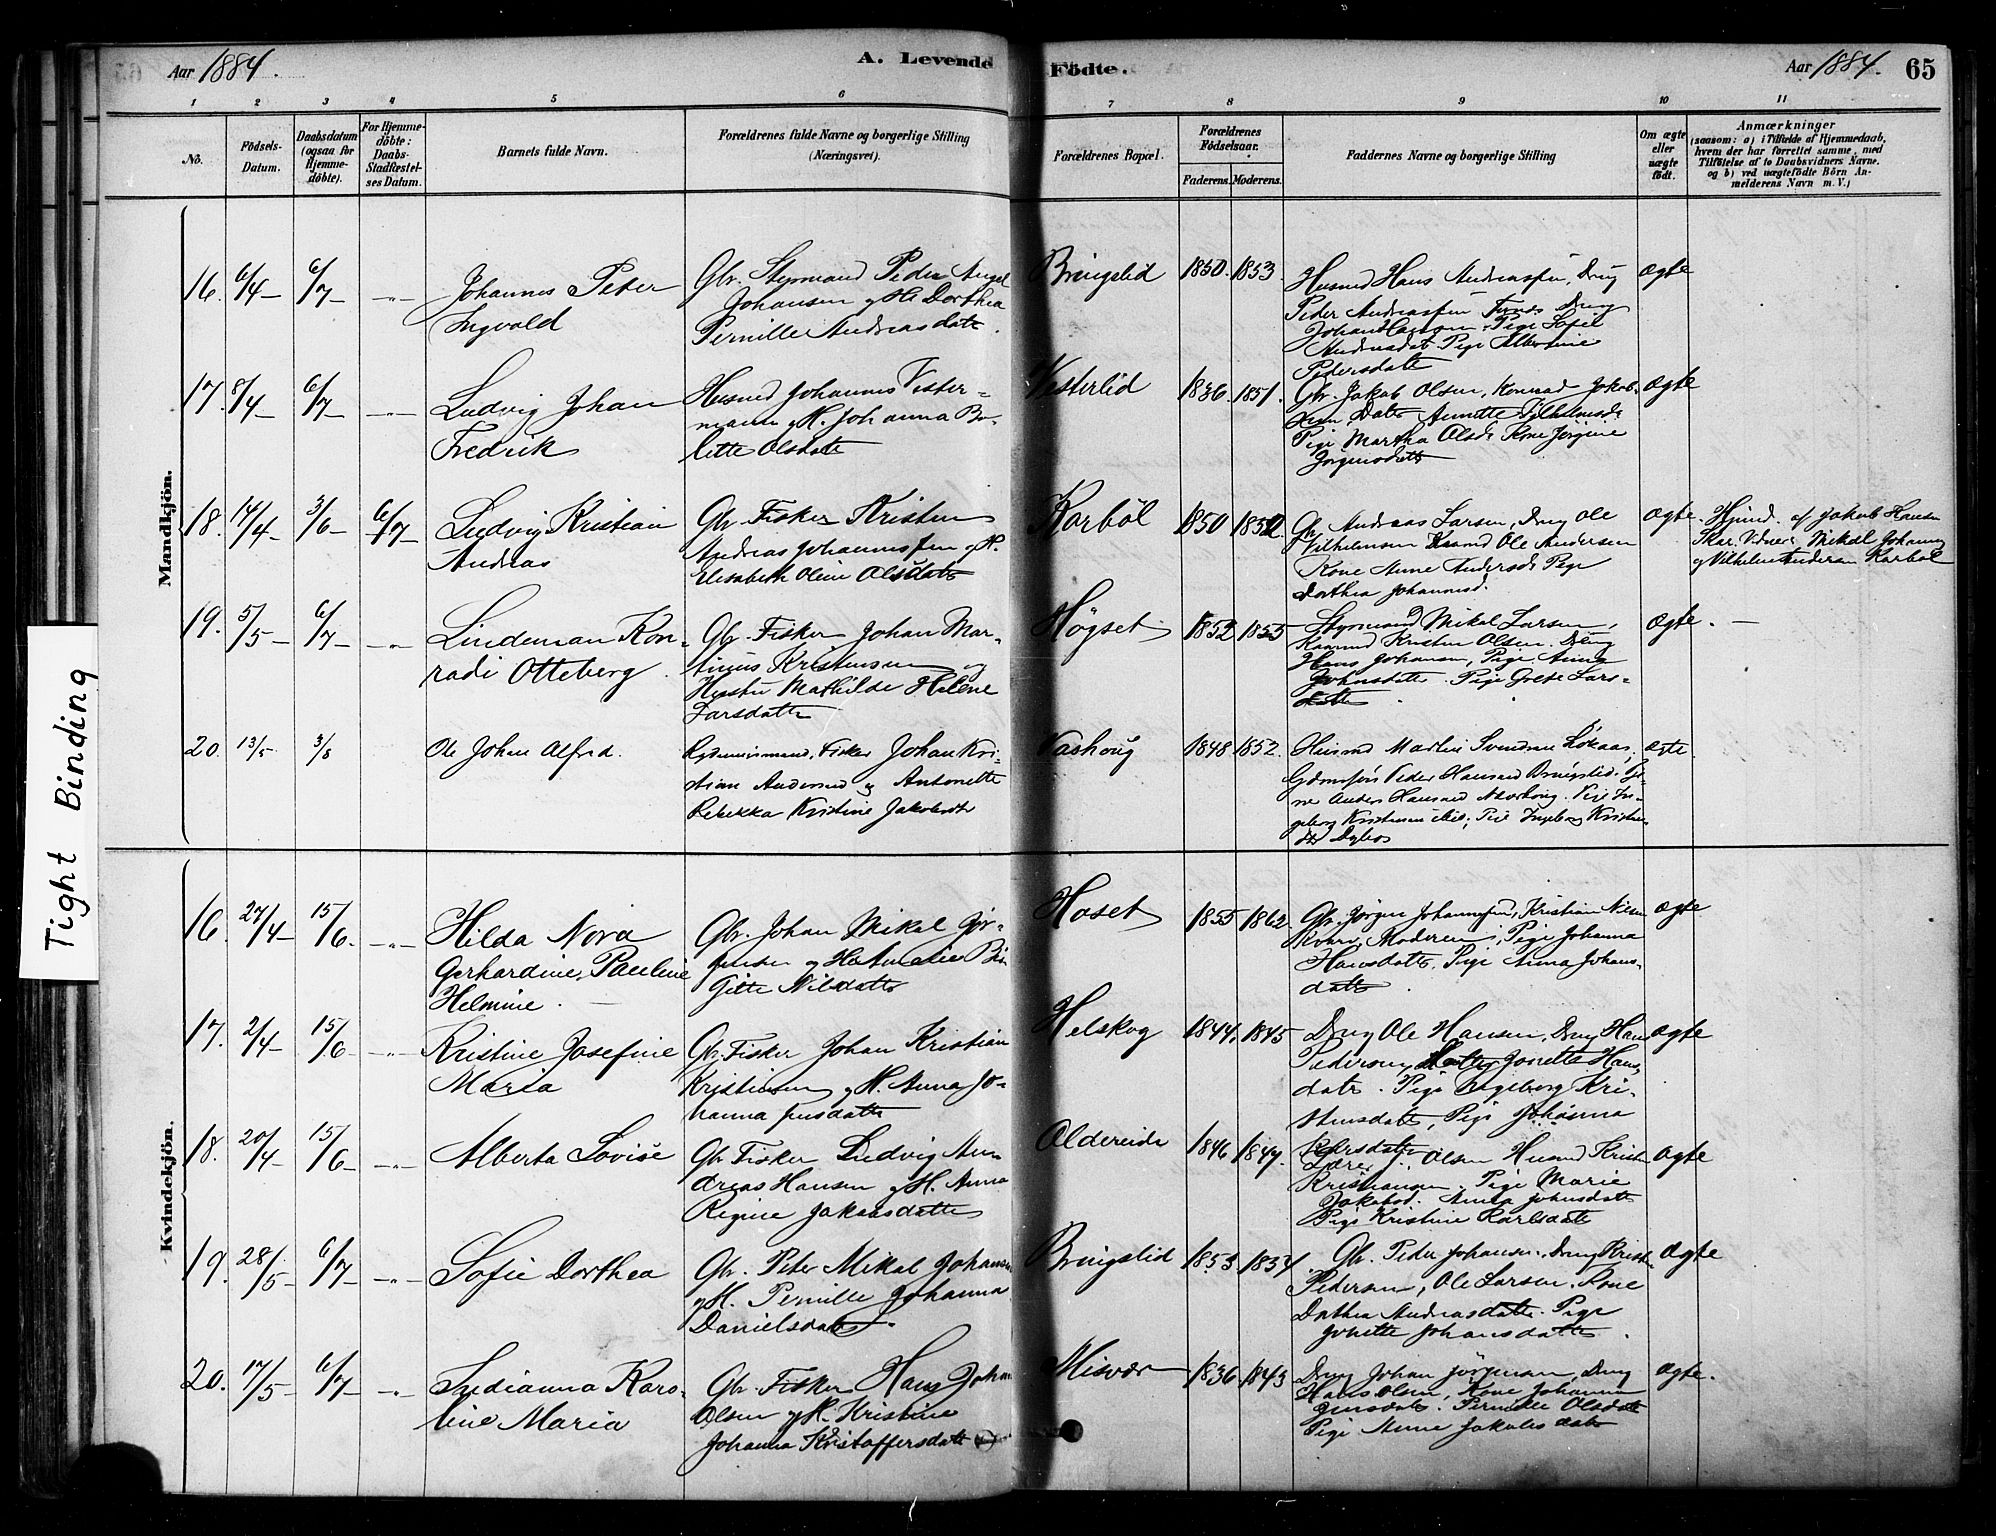 Aar 1884.
A. Levende Födte.
Aar 1884. 65
1 2 3 4 5 6 7 8 9 10 11
No.
Födsels-Datum.
Daabsdatum (ogsaa for Hjemme-döbte).
For Hjemme-döbte: Daabs-Stadfæstel-ses Datum.
Barnets fulde Navn.
Forældrenes fulde Navne og borgerlige Stilling (Næringsvei).
Forældrenes Bopæl.
Forældrenes Födselsaar.
Faderens. Moderens.
Faddernes Navne og borgerlige Stilling
Om ægte eller uægte födt.
Anmærkninger
(saasom: a) i Tilfælde af Hjemmedaab,
hvem der har forrettet samme, med
Tilföielse af to Daabsvidners Navne,
og b) ved uægtefödte Börn An-
melderens Navn m. V.)
Tight Binding
Mandkjön.
16. 6/4 6/7 -"- Johannes Peter
Ingvald
Gbr. Styrmand Peder Angel
Johansen og H. Dorthea
Pernille Andreasdatt.
Bringslid 1850. 1853
Husmd Hans Andreassen, Dreng
Peder Andreassen Dreng
Johan Hansen. Pige Sofie
Andreasdat. Pige Albertine
Pedersdatt
ægte
17. 8/4 6/7 -"- Ludvig Johan
Fredrik
Husmd Johannes Vester-
mann og H. Johanna Bo-
lette Olsdatt
Vesterlid 1836 1851.
Gbr. Jakob Olsen, Konrad Jakob-
sen, Datter Annette Vilhelmsd.
Pige Martha Olsd. Kone Jørgine
Jørgensdatt
ægte
18. 14/4 3/6 6/7 Ludvig Kristian
Andreas
Gbr. Fisker Kristen
Andreas Johannessen og H.
Elisabeth Oline Olsdatt
Karbøl 1850
Gbr. Andreas Larsen, Dreng Ole
Vilhelmsen Ole Andersen
Kone Anne Andersd. Pige
Dorthea Johannesd.
ægte. Hjmd. af Jakob Hansen
Skar. Vidner Mikal Johannes
og Vilhelm Andersen Karbøl
19. 5/5 6/7 -"- Lindeman Kon-
radi Otteberg.
Gbr. Fisker Johan Mar-
tinus Kristensen og
Hustru Mathilde Helene
Larsdatte
Høgset 1852 1855
Styrmand Mikal Larsen,
Kristen Olsen. Dreng
Hans Johansen, Pige Anna
Johnsdatte. Pige Grete Lars-
datte
ægte. —
20. 13/5 3/8 Ole Johan Alfred.
Fisker Johan Kri-
stian Andersen og Antonette
Rebekka Kristine Jakobsdt
Vashoug 1848 1852.
Husmd Martin Svendsen Løkaas,
Peder Hansen Bringslid.
Anders Hansen. Pige In-
geborg Kristensen ibid; Pige Ingeborg Kristens-
dtr
ægte
Kvindekjön.
16. 27/4 15/6. -"- Hilda Nora
Gerhardine, Pauline
Helmine. —
Gbr. Johan Mikal Jør-
gensen og H. Bir-
gitte Nilsdatte
Høset 1855 1862.
Gbr. Jørgen Johannessen, Kristian Nilsen
Moderen, Pige Johanna
Hansdatte. Pige Anna Johans-
datte.
ægte
17. 2/4 15/6 -"- Kristine Josefine
Maria
Gbr. Fisker Johan Kristian
Kristiansen og H. Anna Jo-
hanna Jensdatte
Helskog 1844. 1845
Dreng Ole Hansen, Dreng Hans
Pedersen, Jonetta Hans-
datte. Pige Ingeborg Kri-
stensdatt, Pige Johanna
Larsdatte
ægte
18. 20/4 15/6 -"- Alberta Lovise
Gbr. Fisker Ludvig An-
dreas Hansen og H. Anna
Regine Jakobsdatte
Oldereide 1846 1847.
Lærer J. Olsen Husmd Kristen
Kristiansen. Pige Marie
Jakobsd. Anna Johnsdatte
Pige Kristine Karlsdatt
ægte
19. 28/5 6/7 -"- Sofie Dorthea
Gbr. Peter Mikal Johansen
og H. Pernille Johanna
Danielsdatt.
Bringslid 1853
Gbr. Peder Johansen. Dreng Kristen
Pedersen, Ole Larsen. Kone
Dorthea Andreasdatte. Pige
Jonette Johansdatte.
ægte
20. 17/5 6/7 -"- Indianna Karo-
line Maria
Gbr. Fisker Hans Johan
Olsen og H. Kristine
Johanna Kristoffersdatt
Misvær 1836 1843
Dreng Johan Jörgensen, Dreng
Hans Olsen, Kone Johanna
Jensdatt. Pernille Olsdatt
Pige Anne Jakobsdatt
ægte.